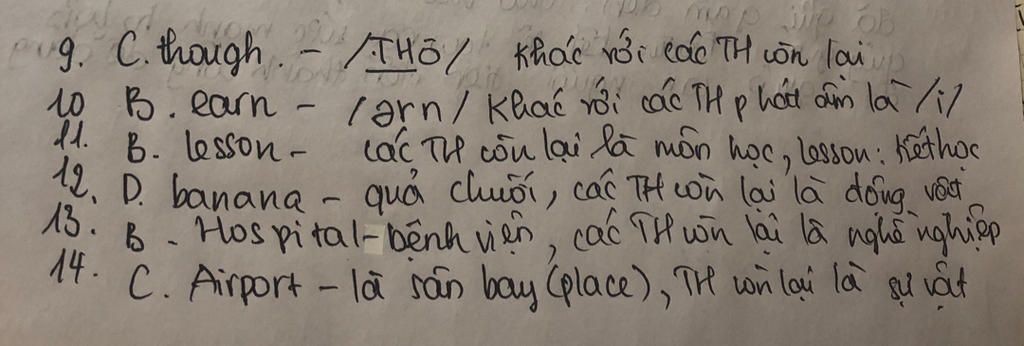 9. C. though. - /THō/ khác với các TH còn lại
10 B. earn - /ərn/ Khác với các TH phát âm là /i/
11. B. lesson - các TH còn lại là môn học, lesson: tiết học
12. D. banana - quả chuối, các TH còn lại là động vật
13. B - Hospital - bệnh viện, các TH còn lại là nghề nghiệp
14. C. Airport - là sân bay (place), TH còn lại là sự vật